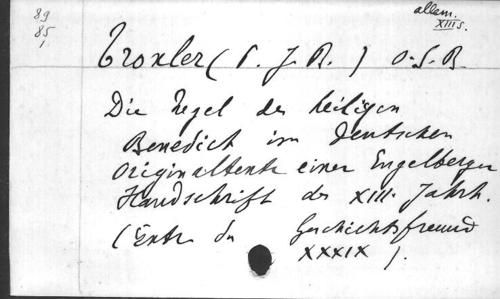 89
85
1
allem.
XIII s.
Troxler ( P. J. B. ) O. S. B
Die Regel des heiligen
Benedict im deutschen
Originaltexte einer Engelberger
Handschrift des XIII. Jahrh.
(Extr du Geschichtsfreund
XXXIX ).